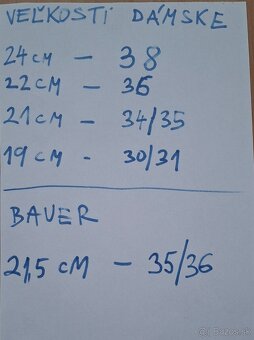 VEĽKOSTI DÁMSKE
24 CM – 38
22 CM – 36
21 CM – 34/35
19 CM - 30/31
BAUER
21,5 CM – 35/36
Bazos.sk